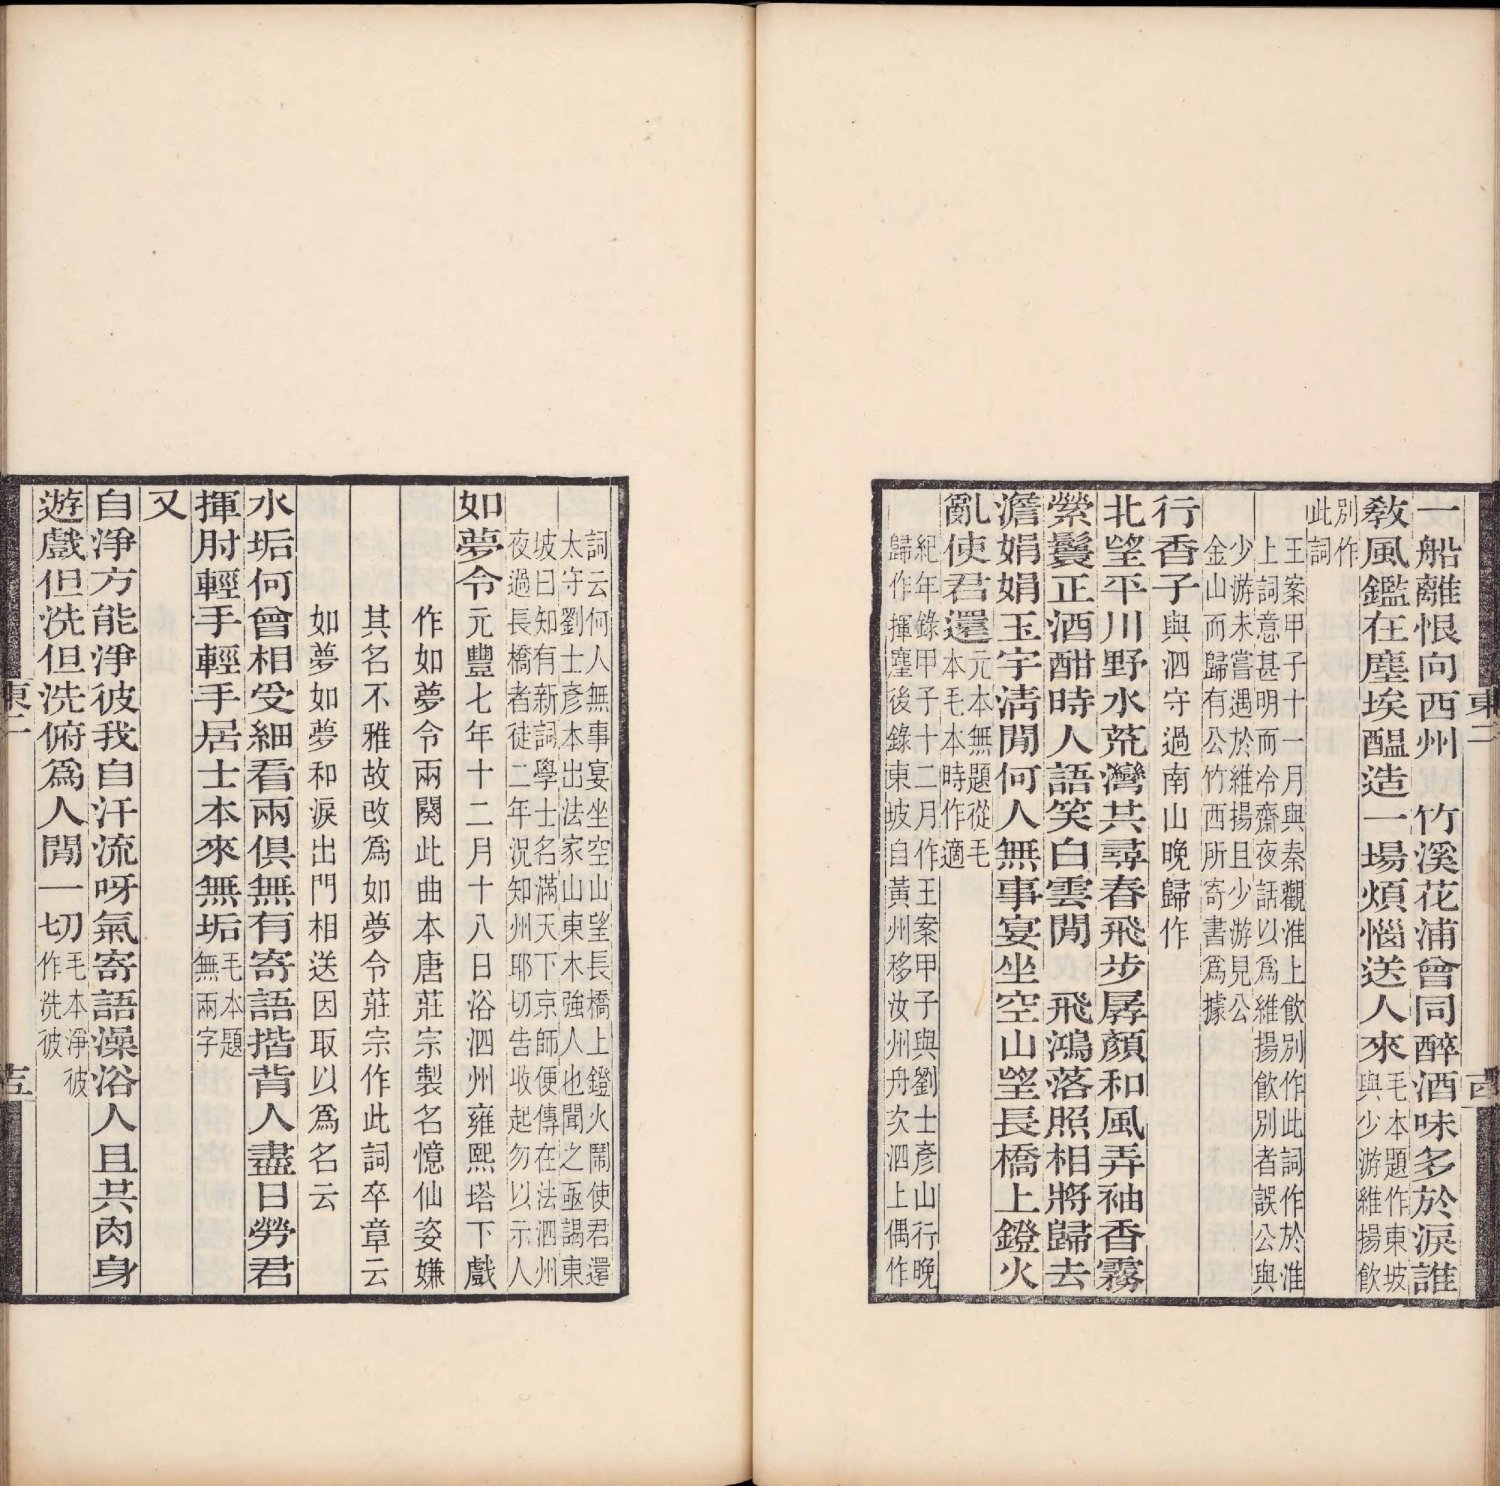 一船離恨向西州　竹溪花浦曾同醉酒味多於淚誰
教風鑑在塵埃醖造一場煩惱送人來毛本題作東坡與少游維揚飲
別作此詞
王案甲子十一月與秦觀淮上飲別作此詞作於淮
上詞意甚明而冷齋夜話以爲維揚飲別者誤公與
少游未嘗遇於維揚且少游見公
金山而歸有公竹西所寄書爲據
行香子與泗守過南山晩歸作
北望平川野水荒灣共尋春飛步孱顏和風弄袖香霧
縈鬟正酒酣時人語笑白雲閒　飛鴻落照相將歸去
澹娟娟玉宇淸閒何人無事宴坐空山望長橋上鐙火
亂使君還元本無題從毛本毛本時作適
紀年錄甲子十二月作王案甲子與劉士彥山行晚
歸作揮麈後錄東坡自黃州移汝州舟次泗上偶作
詞云何人無事宴坐空山望長橋上鐙火鬧使君還
太守劉士彥本出法家山東木強人也聞之亟謁東
坡曰知有新詞學士名滿天下京師便傳在法泗州
夜過長橋者徒二年況知州耶切告收起勿以示人
如夢令元豐七年十二月十八日浴泗州雍熙塔下戲
作如夢令兩闋此曲本唐莊宗製名憶仙姿嫌
其名不雅故改爲如夢令莊宗作此詞卒章云
如夢如夢和淚出門相送因取以爲名云
水垢何曾相受細看兩俱無有寄語揩背人盡日勞君
揮肘輕手輕手居士本來無垢毛本題無兩字
又
自淨方能淨彼我自汗流呀氣寄語澡浴人且共肉身
遊戲但洗但洗俯爲人閒一切毛本淨彼作洗彼
東二